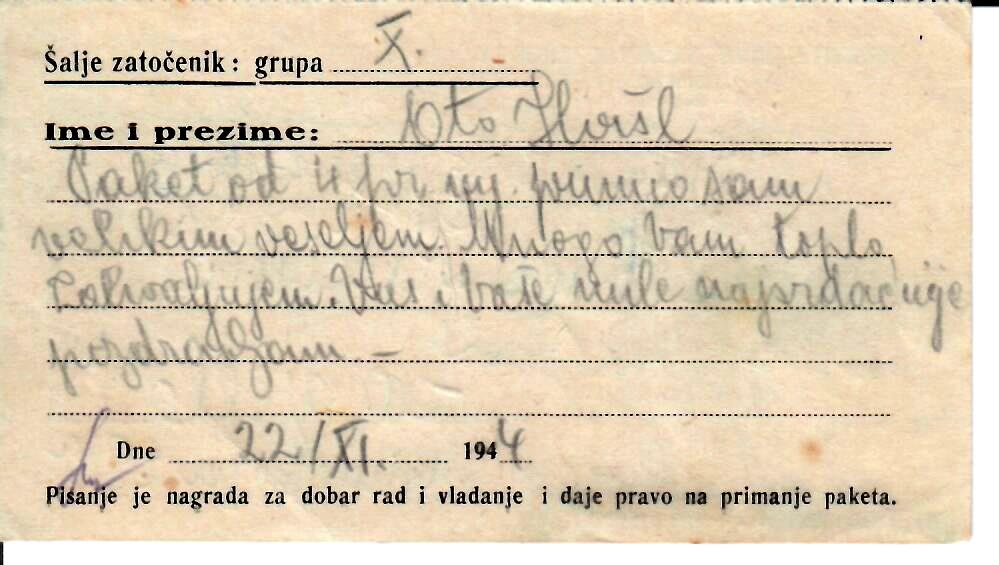 Šalje zatočenik: grupa X.
Ime i prezime: Oto
Paket od 4 pr. mj. primio sam
velikim veseljem. Mnogo Vam toplo
zahvaljujem. Vas i Vaše mile najsrdačnije
pozdravljam –
Dne 22/XI. 1944
Pisanje je nagrada za dobar rad i vladanje i daje pravo na primanje paketa.